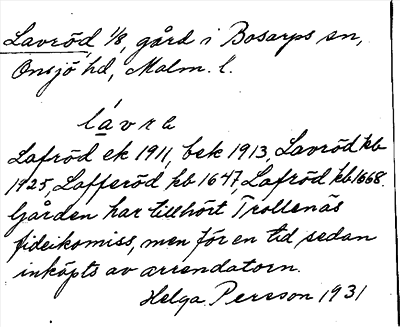 Lavröd, 1/8, gård i Bosarps sn,
Onsjö hd, Malm. l.
Lafröd ek 1911, bek 1913, Lavröd kb
1925, Lafferöd kb 1647, Lafröd kb 1668.
Gården har tillhört Trollenäs
fideikomiss, men för en tid sedan
inköpts av arrendatorn.
Helga Persson 1931